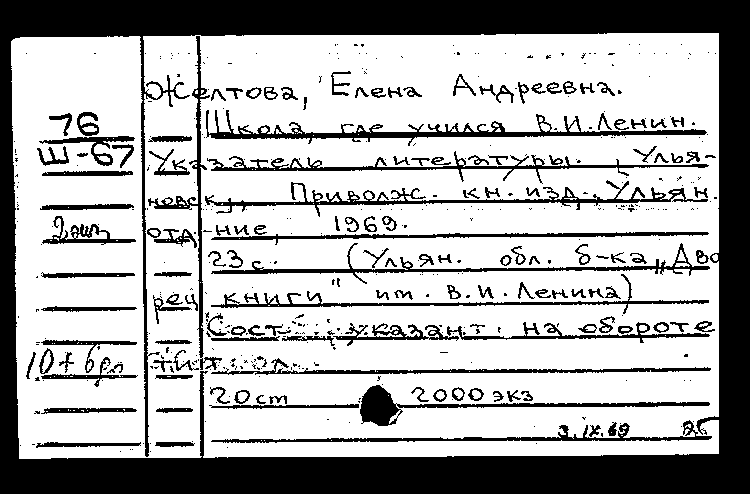 Желтова, Елена Андреевна.
76
Школа, где учился В.И.Ленин.
Ш-67
Указатель литературы. [Улья-
новск], Приволж. кн. изд., Ульян.
2 экз
отд-ние, 1969.
23 с. (Ульян. обл. б-ка „Дво
рец книги" им. В.И.Ленина)
Сост. указан. на обороте
тит. л.
20 cm 2000 экз
3.IX.69 25